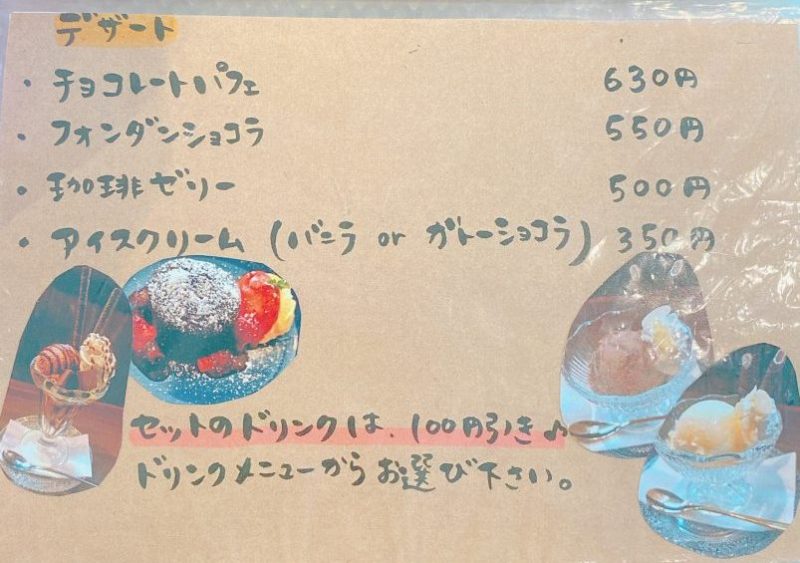 デザート
・チョコレートパフェ 630円
・フォンダンショコラ 550円
・珈琲ゼリー 500円
・アイスクリーム (バニラ or ガトーショコラ) 350円
セットのドリンクは、100円引き♪
ドリンクメニューからお選び下さい。